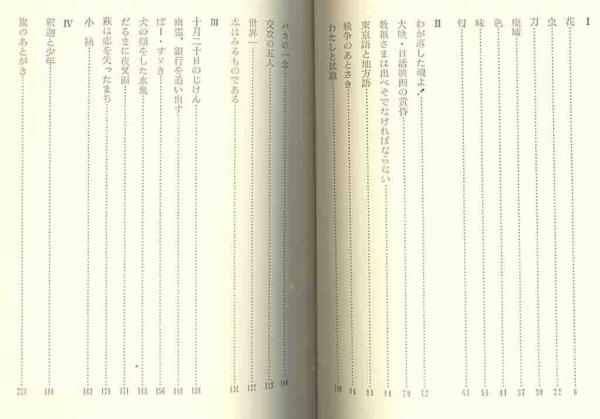 I
花……6
虫……22
刀……30
廃墟……37
色……41
味……51
匂……61
II
わが落した魂よ!……72
大映・日活映画の黄昏……79
教祖さまは出べそでなければならない……81
東京語と地方語……88
戦争のあとさき……94
わたしと試験……100
バカの一念
交攻の五人
世界一……127
本はみるものである……131
III
十月二十日のじけん……138
幽霊、銀行を追い出す……148
ぼー・すゞき……156
犬の顔をした水鬼……163
だるまに夜叉面……171
萩は恋を失ったまち……179
小袖……183
IV
釈迦と少年
旅のあとがき……223